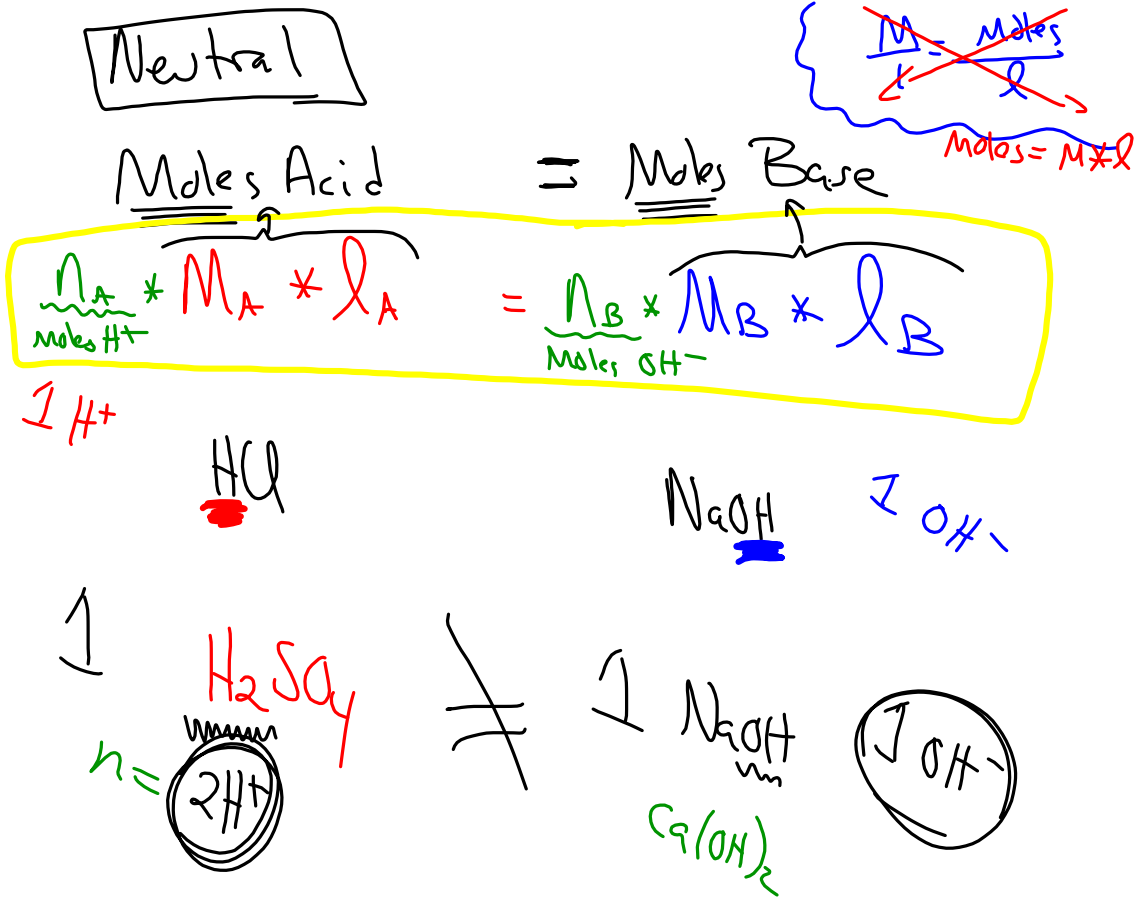 Neutral
M/1 = Moles/l
Moles = M*l
Moles Acid = Moles Base
nA * MA * lA = nB * MB * lB
Moles H+ Moles OH-
1 H+
HCl NaOH 1 OH-
1 H2SO4 ≠ 1 NaOH 1 OH-
n = 2H+
Ca(OH)2